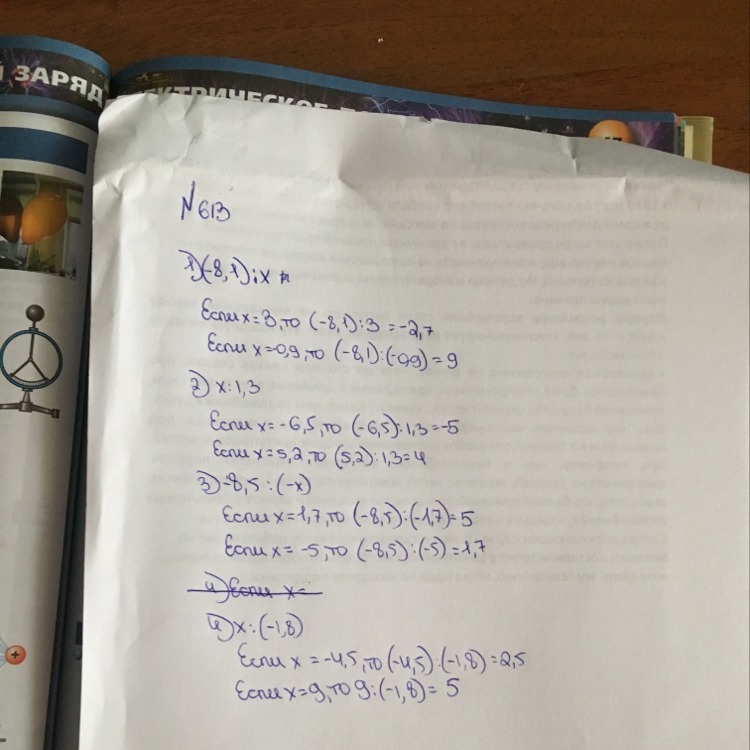 Й ЗАРЯД
ЕКТРИЧЕСКОЕ
N 613
1) (-8,1) : x
Если x = 3, то (-8,1) : 3 = -2,7
Если x = -0,9, то (-8,1) : (-0,9) = 9
2) x : 1,3
Если x = -6,5, то (-6,5) : 1,3 = -5
Если x = 5,2, то (5,2) : 1,3 = 4
3) -8,5 : (-x)
Если x = 1,7, то (-8,5) : (-1,7) = 5
Если x = -5, то (-8,5) : (-5) = 1,7
4) Если x =
4) x : (-1,8)
Если x = -4,5, то (-4,5) : (-1,8) = 2,5
Если x = 9, то 9 : (-1,8) = 5